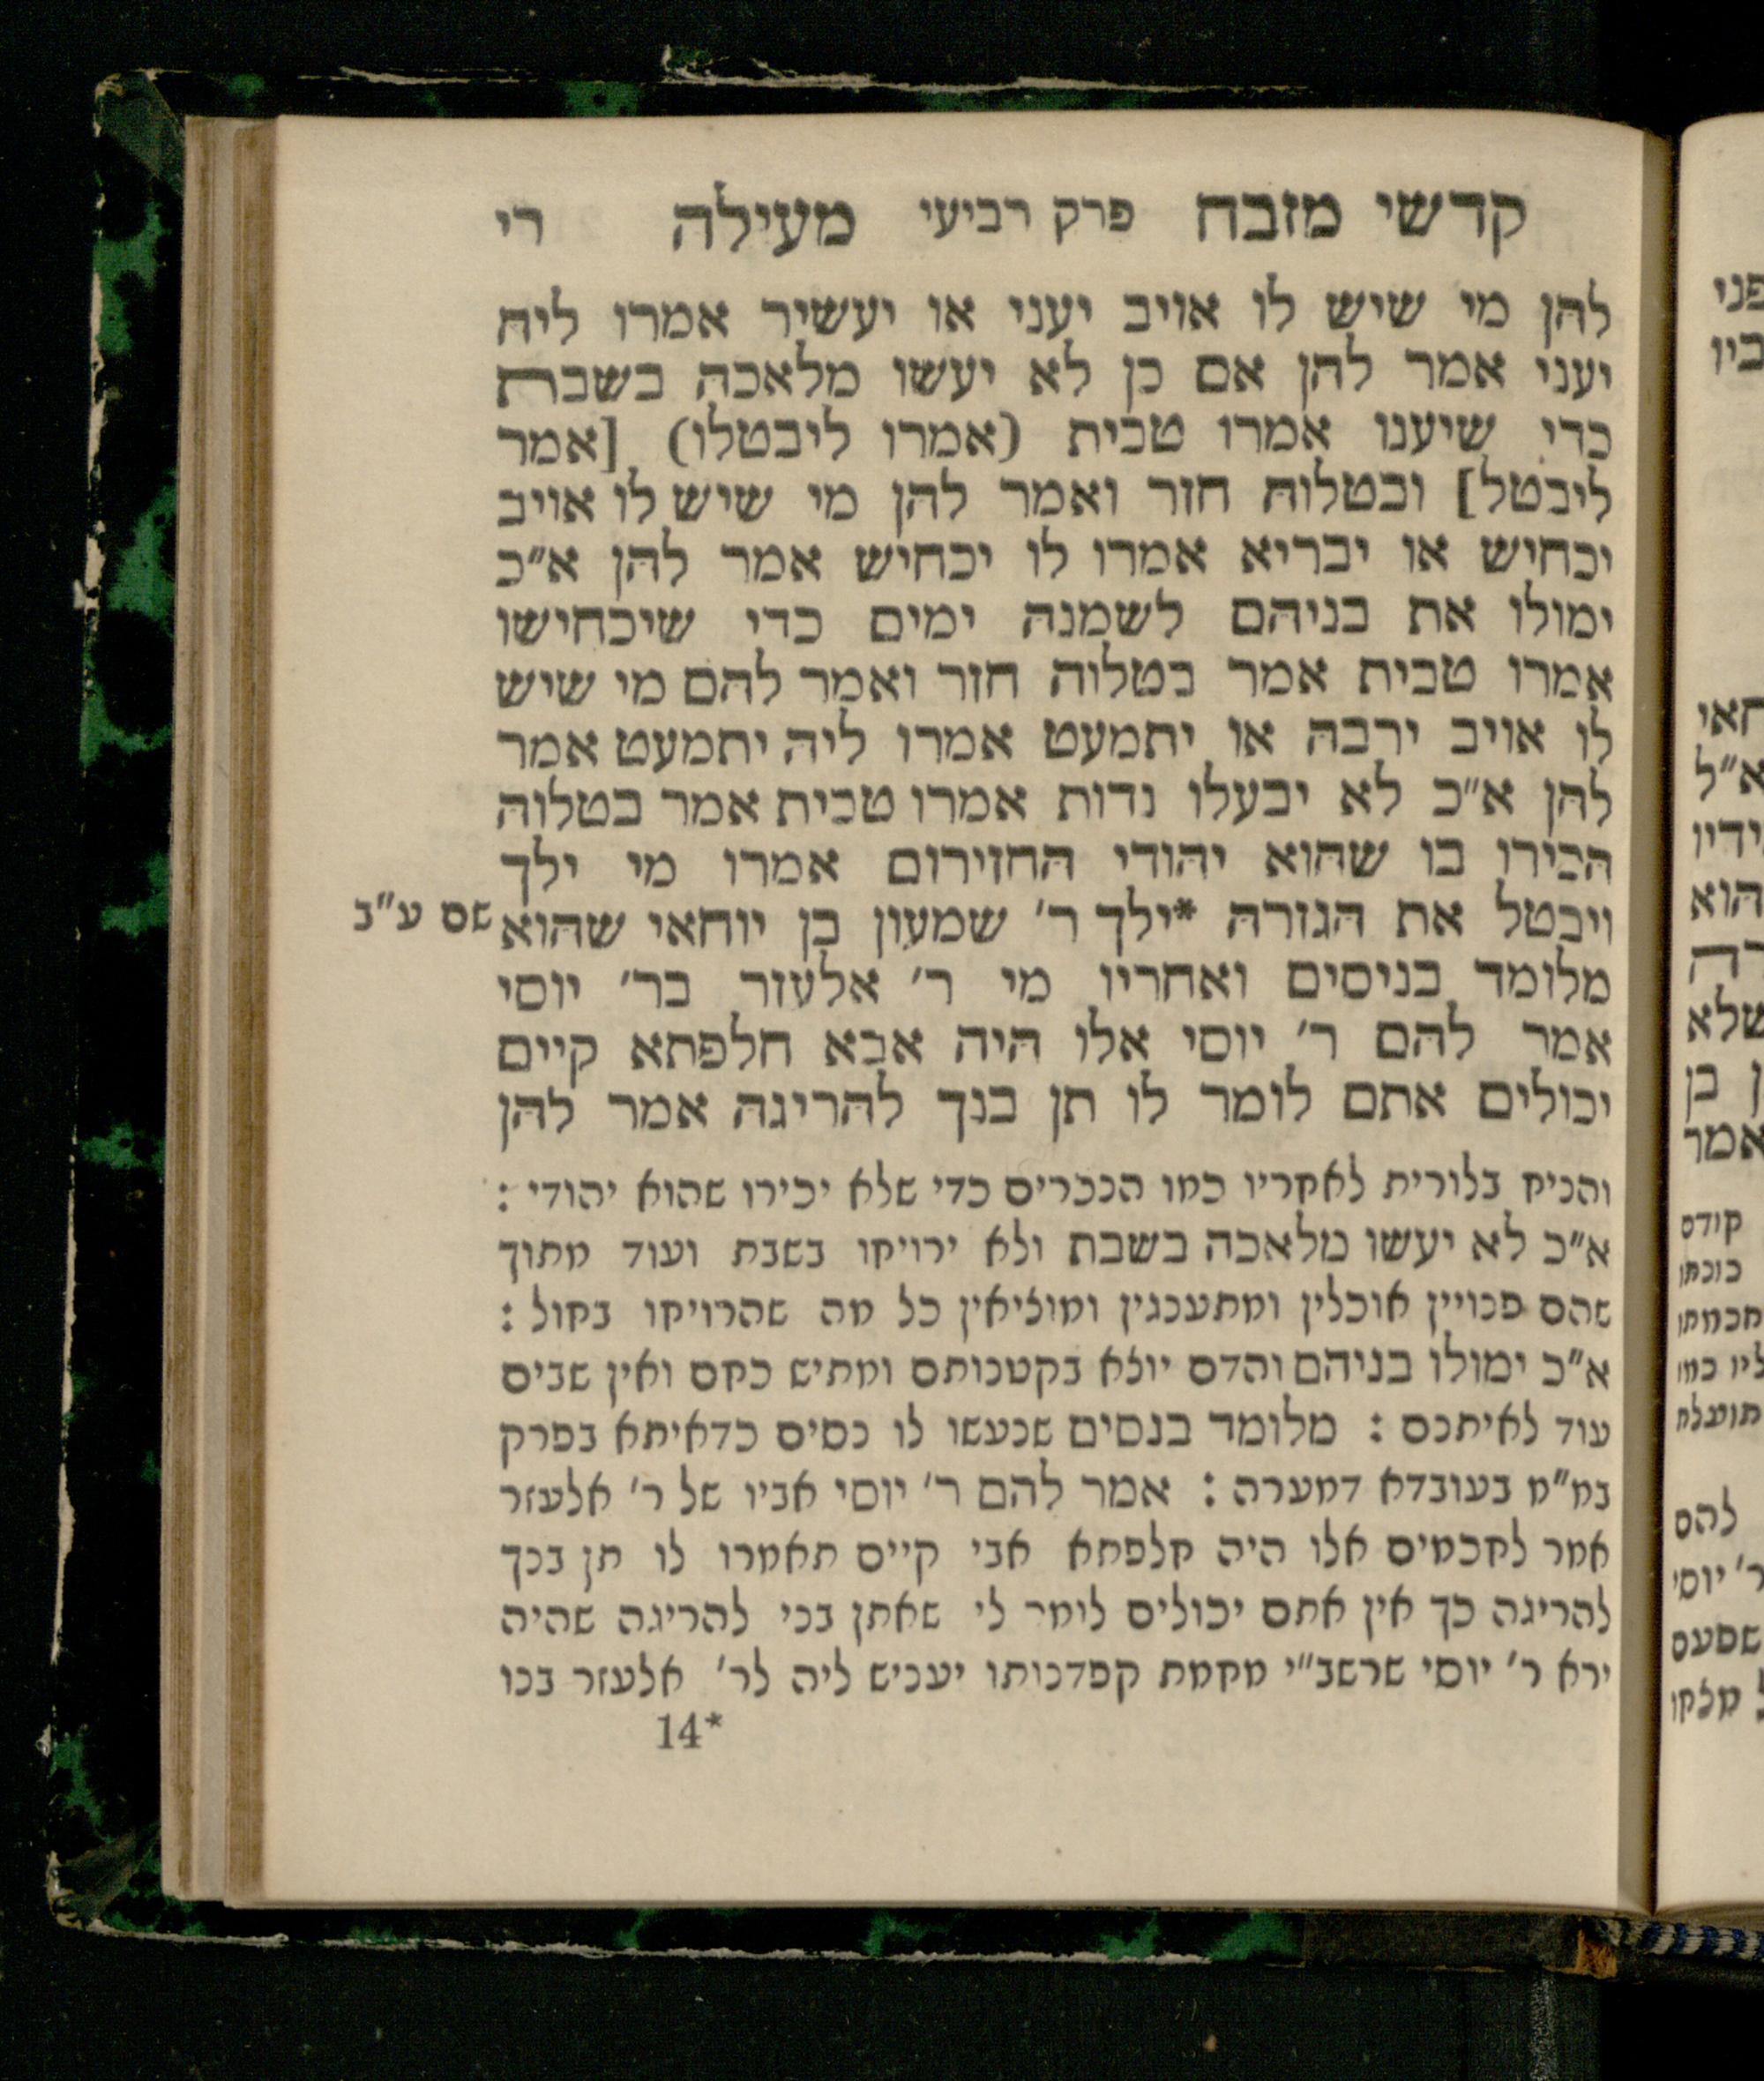 קדשי מזבח פרק רביעי מעילה רי
להן מי שיש לו אויב יעני או יעשיר אמרו ליה
יעני אמר להן אם כן לא יעשו מלאכה בשבת
כדי שיענו אמרו טבית (אמרו ליבטלו) [אמר
ליבטל] ובטלוה חזר ואמר להן מי שיש לו אויב
יכחיש או יבריא אמרו לו יכחיש אמר להן א״כ
ימולו את בניהם לשמנה ימים כדי שיכחישו
אמרו טבית אמר בטלוה חזר ואמר להם מי שיש
לו אויב ירבה או יתמעט אמרו ליה יתמעט אמר
להן א״כ לא יבעלו נדות אמרו טבית אמר בטלוה
הכירו בו שהוא יהודי החזירום אמרו מי ילך
ויבטל את הגזרה *ילך ר׳ שמעון בן יוחאי שהוא
שם ע״ב
מלומד בניסים ואחריו מי ר׳ אלעזר בר׳ יוסי
אמר להם ר׳ יוסי אלו היה אבא חלפתא קיים
יכולים אתם לומר לו תן בנך להריגה אמר להן
והניח בלורית לאחריו כמו הנכרים כדי שלא יכירו שהוא יהודי :
א״כ לא יעשו מלאכה בשבת ולא ירויחו בשבת ועוד מתוך
שהם פנויין אוכלין ומתענגין ומוציאין כל מה שהרויחו בחול :
א״כ ימולו בניהם והדם יוצא בקטנותם ומתיש כחם ואין שבים
עוד לאיתנם : מלומד בנסים שנעשו לו נסים כדאיתא בפרק
במ״מ בעובדא דמערה : אמר להם ר׳ יוסי אביו של ר׳ אלעזר
אמר לחכמים אלו היה חלפתא אבי קיים תאמרו לו תן בנך
להריגה כך אין אתם יכולים לומר לי שאתן בני להריגה שהיה
ירא ר׳ יוסי שרשב״י מחמת קפדנותו יעניש ליה לר׳ אלעזר בנו
14*